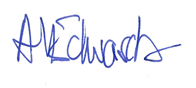 A Edwards